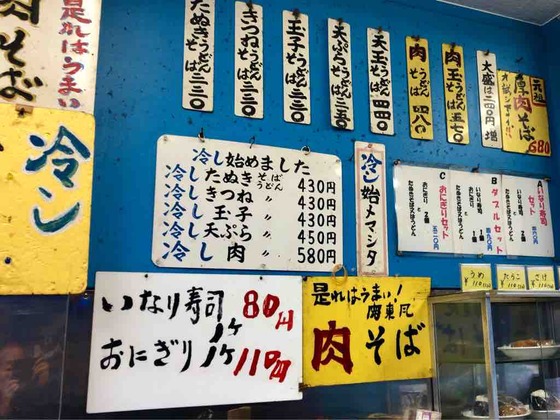 是れはうまい
肉そば
冷シ
たぬきうどんそば三三〇
きつねうどんそば三三〇
玉子うどんそば三三〇
天ぷらうどんそば三五〇
天玉うどんそば四四〇
肉うどんそば四八〇
肉玉うどんそば五七〇
大盛は二四〇円増
元祖
厚肉そば
680
冷し始めました
冷したぬきそばうどん430円
冷しきつね〃430円
冷し玉子〃430円
冷し天ぷら〃450円
冷し肉〃580円
冷シ始メマシタ
Aいなり寿司セット
いなり寿司
Bダブルセット
いなり寿司
おにぎり
Cおにぎりセット
おにぎり 2個
たぬきそば又はうどん
うめ
¥110
たらこ
¥110
さけ
¥110
いなり寿司1ケ80円
おにぎり1ケ110円
是れはうまい!
関東風
肉そば